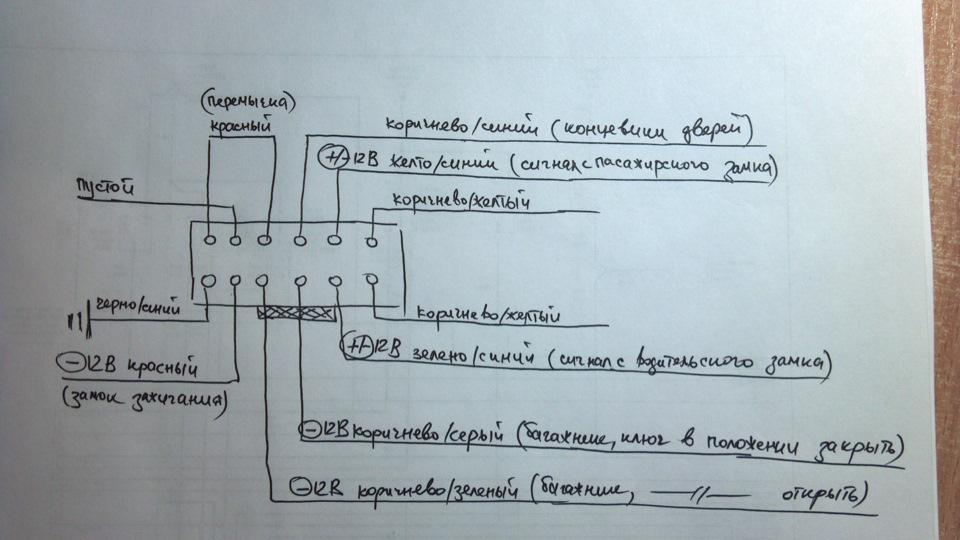 (перемычка)
красный
коричнево/синий (концевики дверей)
+/-12В желто/синий (сигнал с пасажирского замка)
пустой
коричнево/желтый
черно/синий
коричнево/желтый
-12В красный
(замок зажигания)
+/-12В зелено/синий (сигнал с водительского замка)
-12В коричнево/серый (багажник, ключ в положении закрыть)
-12В коричнево/зеленый (багажник, —//— открыть)